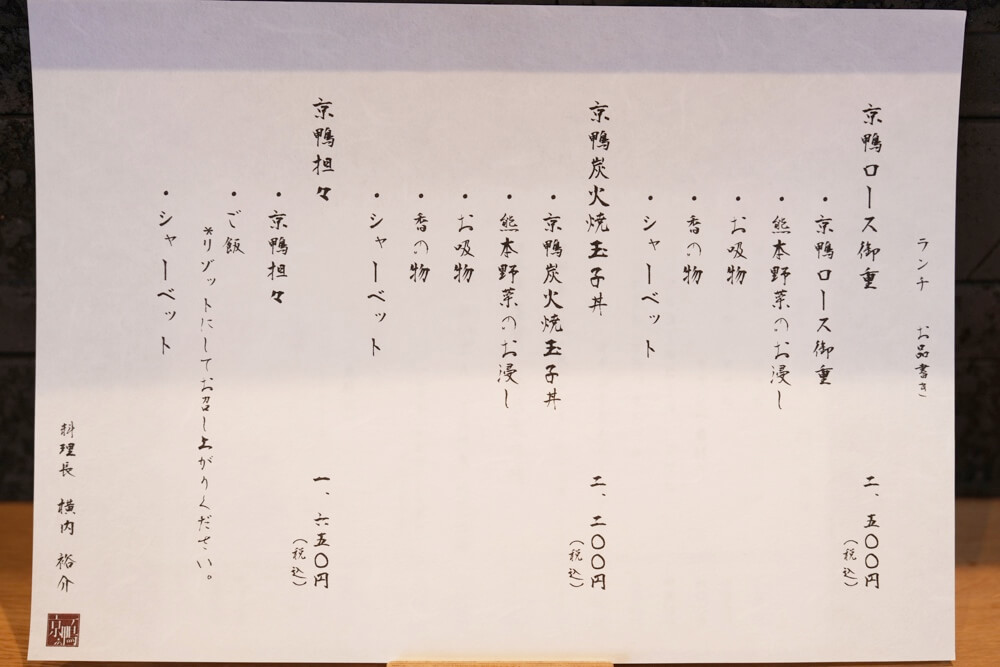 ランチ　お品書き
京鴨ロース御重　二、五〇〇円
（税込）
・京鴨ロース御重
・熊本野菜のお浸し
・お吸物
・香の物
・シャーベット
京鴨炭火焼玉子丼　二、二〇〇円
（税込）
・京鴨炭火焼玉子丼
・熊本野菜のお浸し
・お吸物
・香の物
・シャーベット
京鴨担々　一、六五〇円
（税込）
・京鴨担々
・ご飯
*リゾットにしてお召し上がりください。
・シャーベット
料理長　横内　裕介